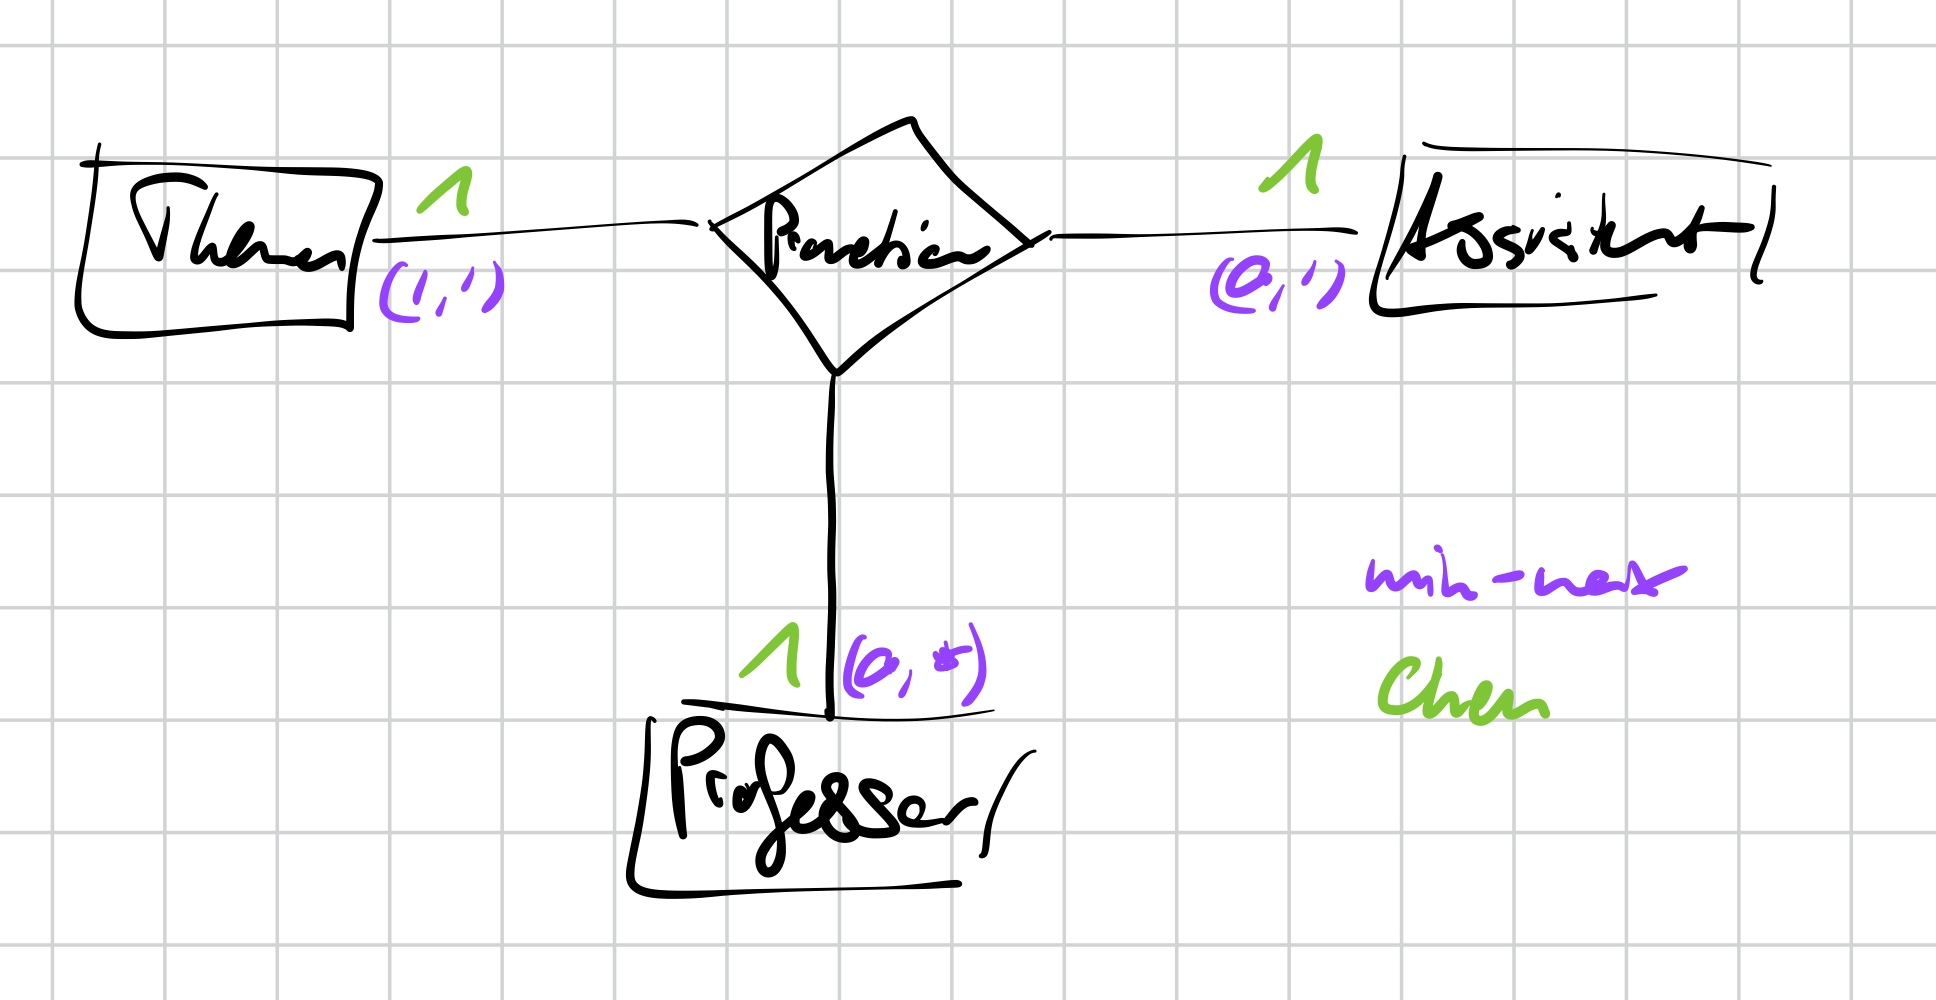 Themen
1
(1,1)
Promotion
1
(0,1)
Assistent
1
(0,*)
Professor
min-max
Chen